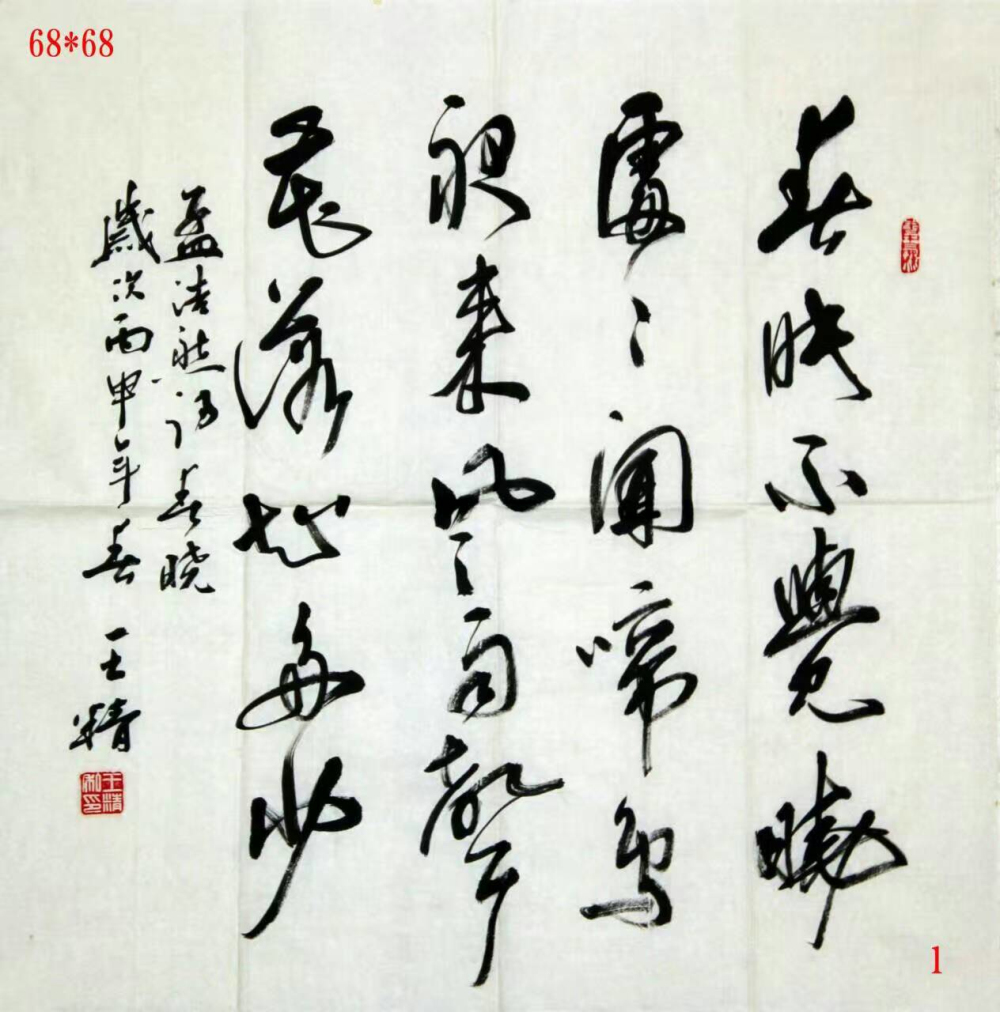 68*68
春眠不覺曉
處〻聞啼鳥
夜来風雨聲
花落知多少
孟浩然詩春晓
歲次丙申年春 王精
1